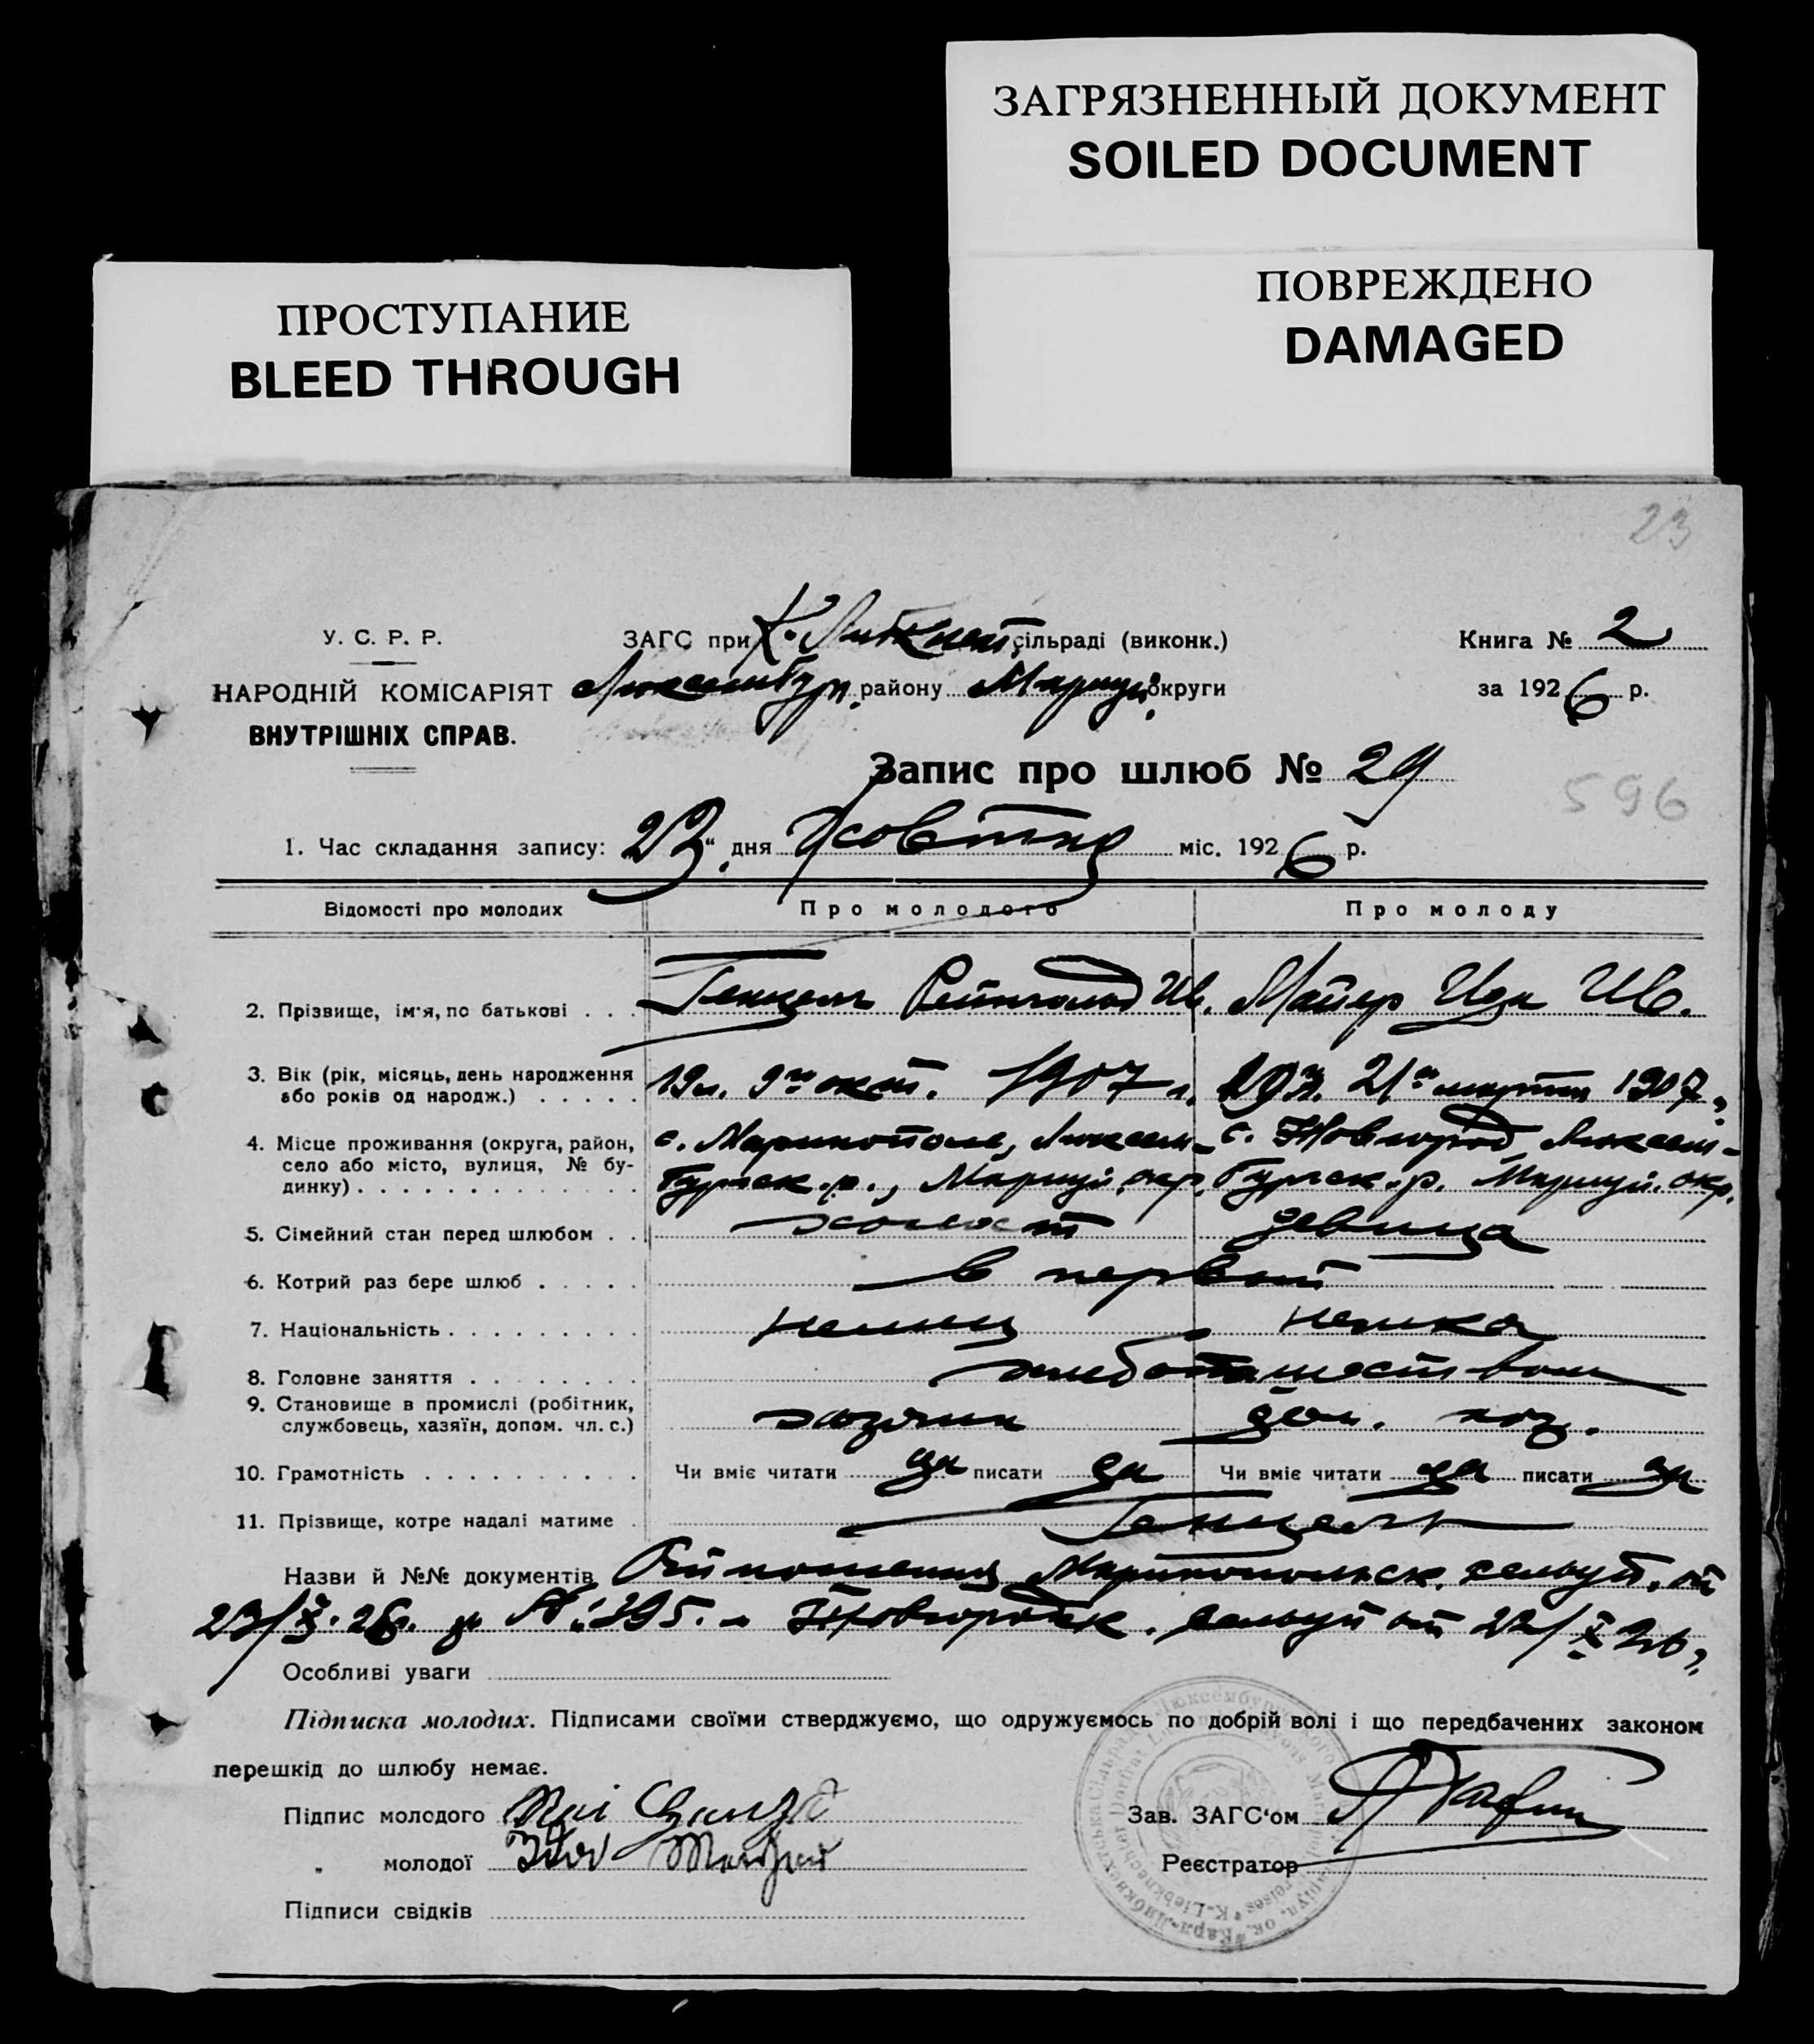 ЗАГРЯЗНЕННЫЙ ДОКУМЕНТ
SOILED DOCUMENT
ПОВРЕЖДЕНО
DAMAGED
ПРОСТУПАНИЕ
BLEED THROUGH
23
У. С. Р. Р.
НАРОДНІЙ КОМІСАРІЯТ
ВНУТРІШНІХ СПРАВ.
ЗАГС при К. Либкнехт. сільраді (виконк.)
Люксембур. району Мариуп. округи
Книга № 2
за 1926 р.
Запис про шлюб № 29
596
1. Час складання запису: 23 дня Жовтня міс. 1926 р.
Відомості про молодих Про молодого Про молоду
2. Прізвище, ім'я, по батькові . . . Генцель Рейнгольд Ив. Майер Ида Ив.
3. Вік (рік, місяць, день народження
або років од народж.) . . . . . 19 л. 9го окт. 1907 г. 19 л. 21го марта 1907 г.
4. Місце проживання (округа, район, с. Маринополь, Люксем- с. Новгород Люксем-
село або місто, вулиця, № бу- бургск. р., Мариуп. окр. бургск. р. Мариуп. окр.
динку) . . . . . . . . . . . . .
5. Сімейний стан перед шлюбом . . холост девица
6. Котрий раз бере шлюб . . . . . в первый
7. Національність . . . . . . . . . немец немка
8. Головне заняття . . . . . . . . хлебопашеством
9. Становище в промислі (робітник,
службовець, хазяїн, допом. чл. с.) хозяин доп. хоз.
10. Грамотність . . . . . . . . . . Чи вміє читати да писати да Чи вміє читати да писати да
11. Прізвище, котре надалі матиме . Генцель
Назви й №№ документів Отношения Маринопольск. сельуп. от
23/X.26 г. за №: 395. и Новгородск. сельуп от 22/X 26 г.
Особливі уваги
Підписка молодих. Підписами своїми стверджуємо, що одружуємось по добрій волі і що передбачених законом
перешкід до шлюбу немає.
Підпис молодого
" молодої Ida
Підписи свідків
Зав. ЗАГС'ом
Реєстратор